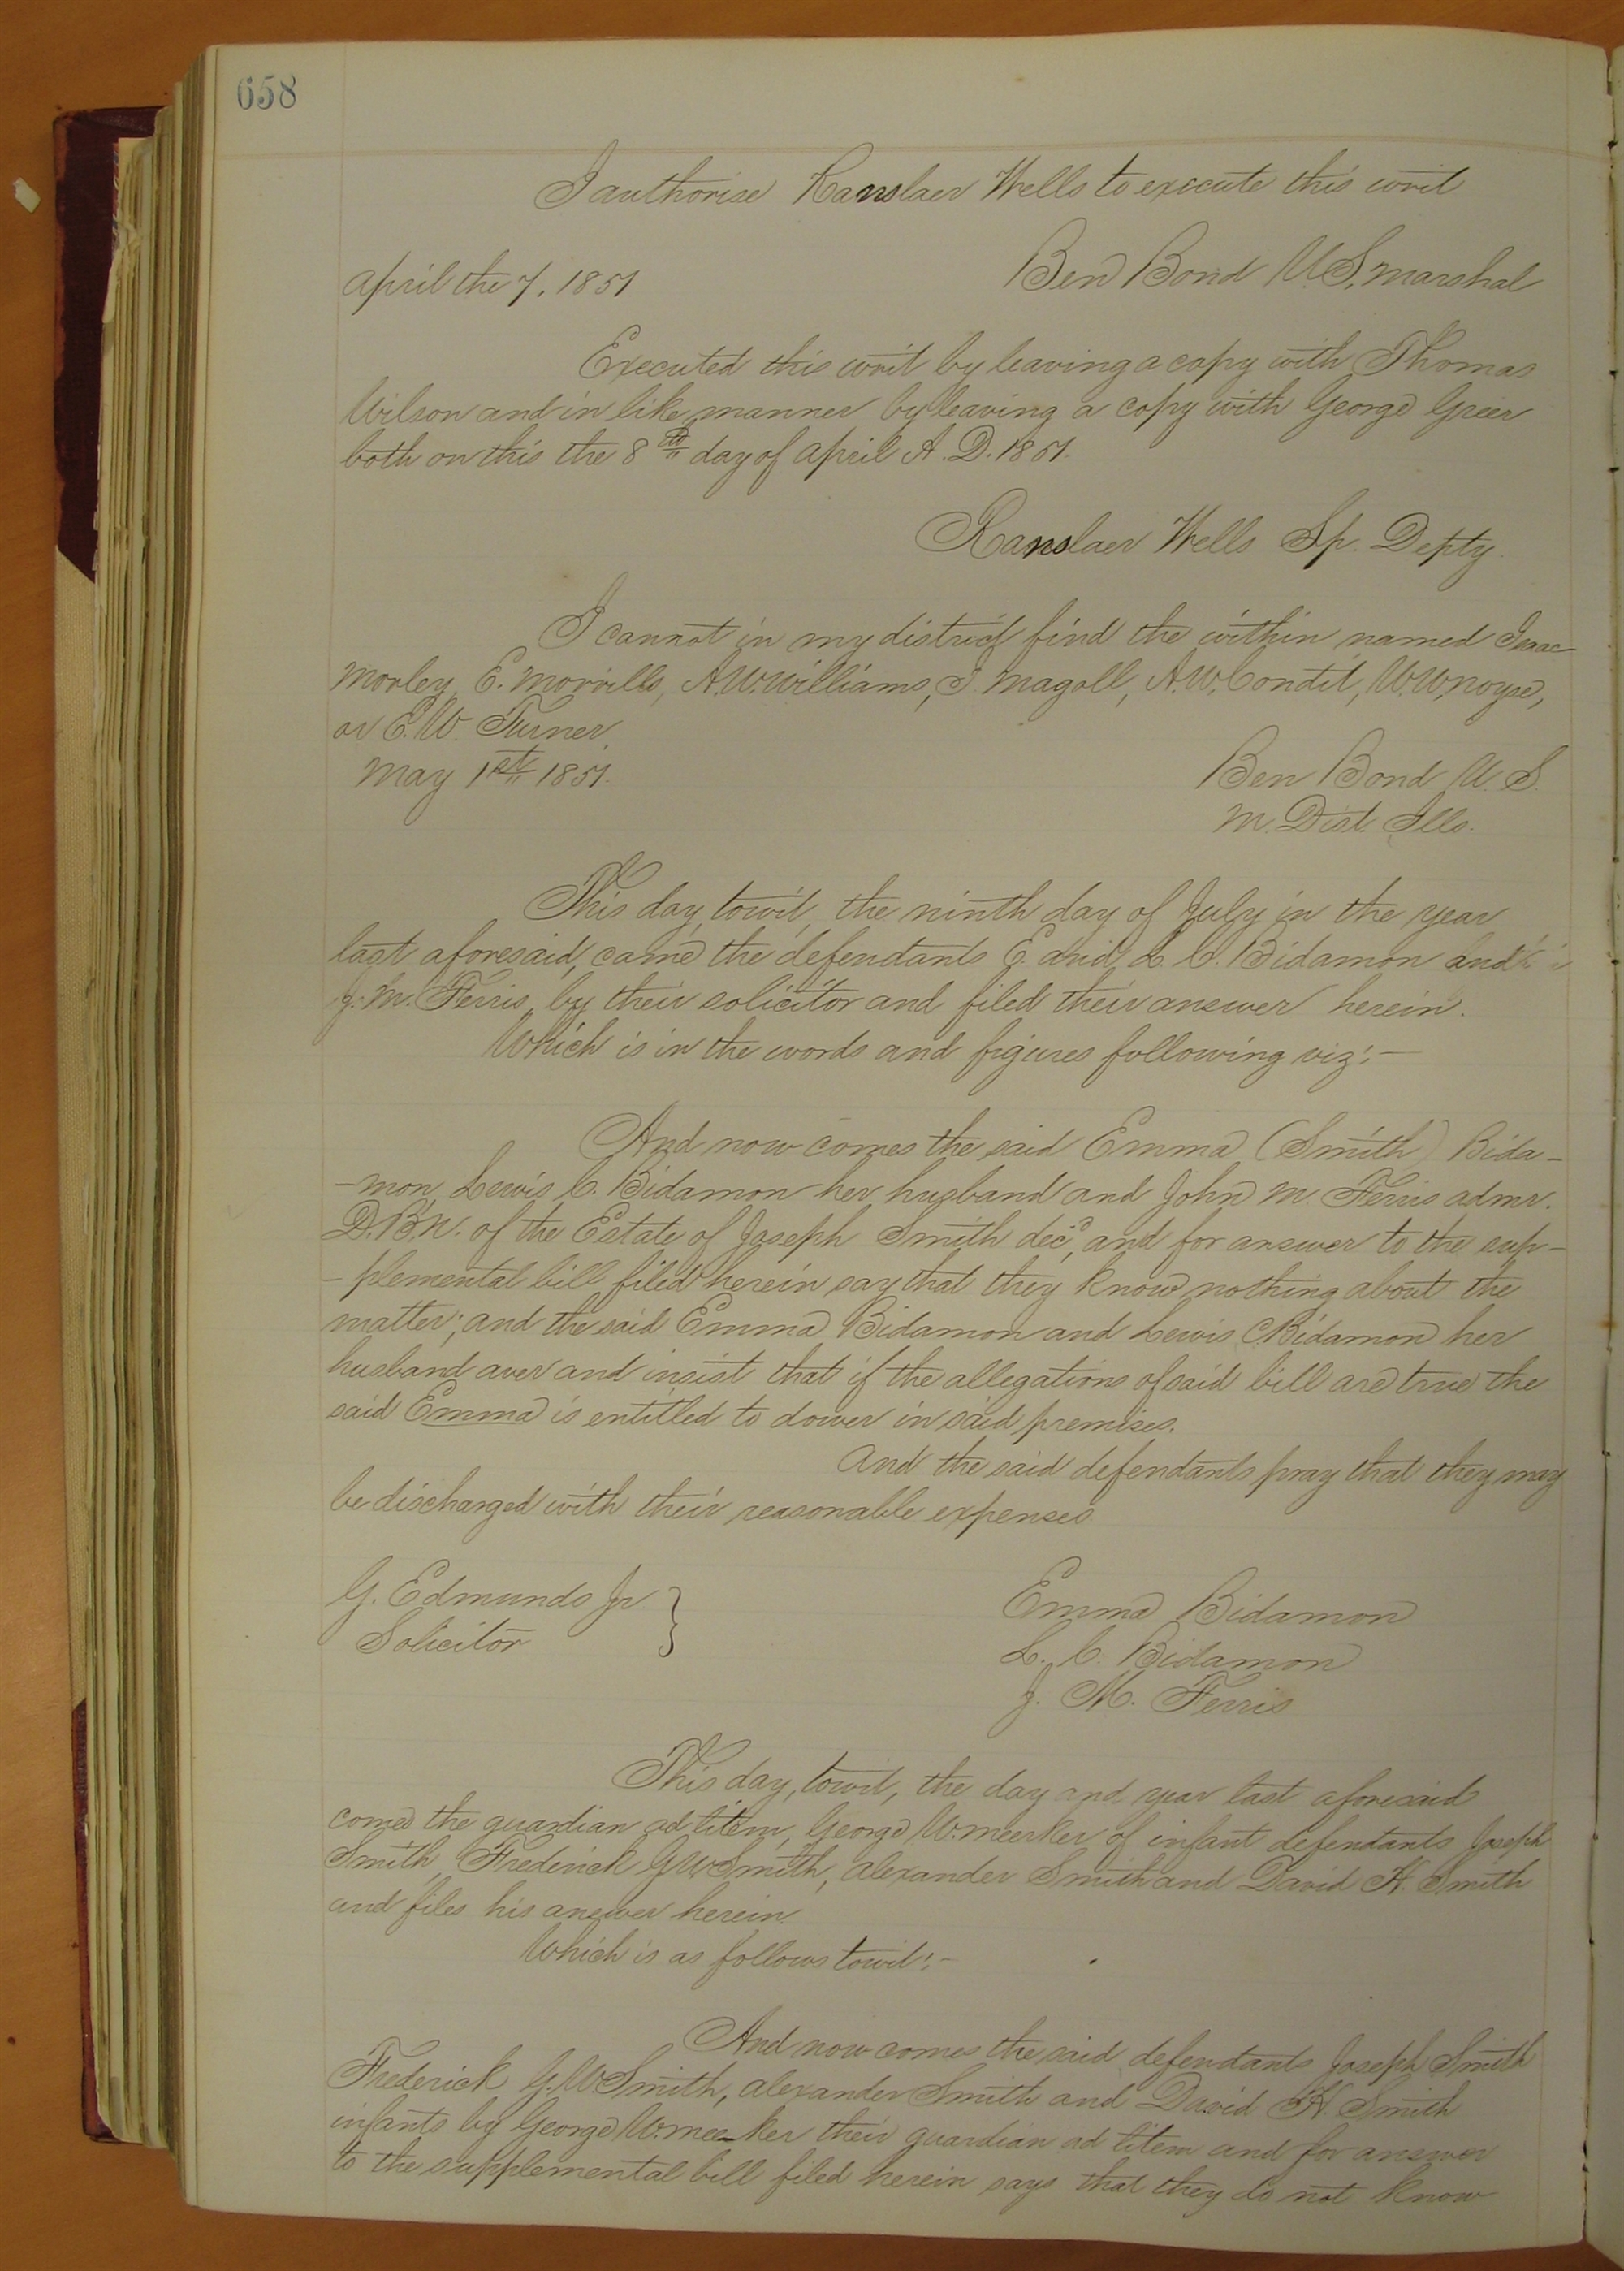 658
I authorise Ranslaer Wells to execute this writ
april the 7, 1851 Ben Bond U.S. marshal
Executed this writ by leaving a copy with Thomas
Wilson and in like manner by leaving a copy with George Greer
both on this the 8th day of april A.D. 1851.
Ranslaer Wells Sp. Depty.
I cannot in my district find the within named Isaac
Morley, E. Morrills, A.W. Williams, I. Magoll, A.W. Condit, W.W. Noyse,
or E.W. Turner.
May 1st 1851. Ben Bond U.S.
M. Dist. Ills.
This day, towit, the ninth day of July in the year
last aforesaid, came the defendants E. and L. C. Bidamon and
J. M. Ferris, by their solicitor and filed their answer herein.
Which is in the words and figures following viz:—
And now comes the said Emma (Smith) Bida-
-mon, Lewis C. Bidamon her husband and John M. Ferris admr.
D.B.N. of the Estate of Joseph Smith decd, and for answer to the sup-
-plemental bill filed herein say that they know nothing about the
matter; and the said Emma Bidamon and Lewis C Bidamon her
husband aver and insist that if the allegations of said bill are true the
said Emma is entitled to dower in said premises.
And the said defendants pray that they may
be discharged with their reasonable expenses.
G. Edmunds Jr } Emma Bidamon
Solicitor L. C. Bidamon
J. M. Ferris
This day, towit, the day and year last aforesaid
comes the guardian ad litem, George W. Meeker of infant defendants Joseph
Smith, Frederick G W Smith, Alexander Smith and David H. Smith
and files his answer herein.
Which is as follows towit:—
And now comes the said defendants Joseph Smith
Frederick G. W Smith, Alexander Smith and David H. Smith
infants by George W. Meeker their guardian ad litem and for answer
to the supplemental bill filed herein says that they do not know